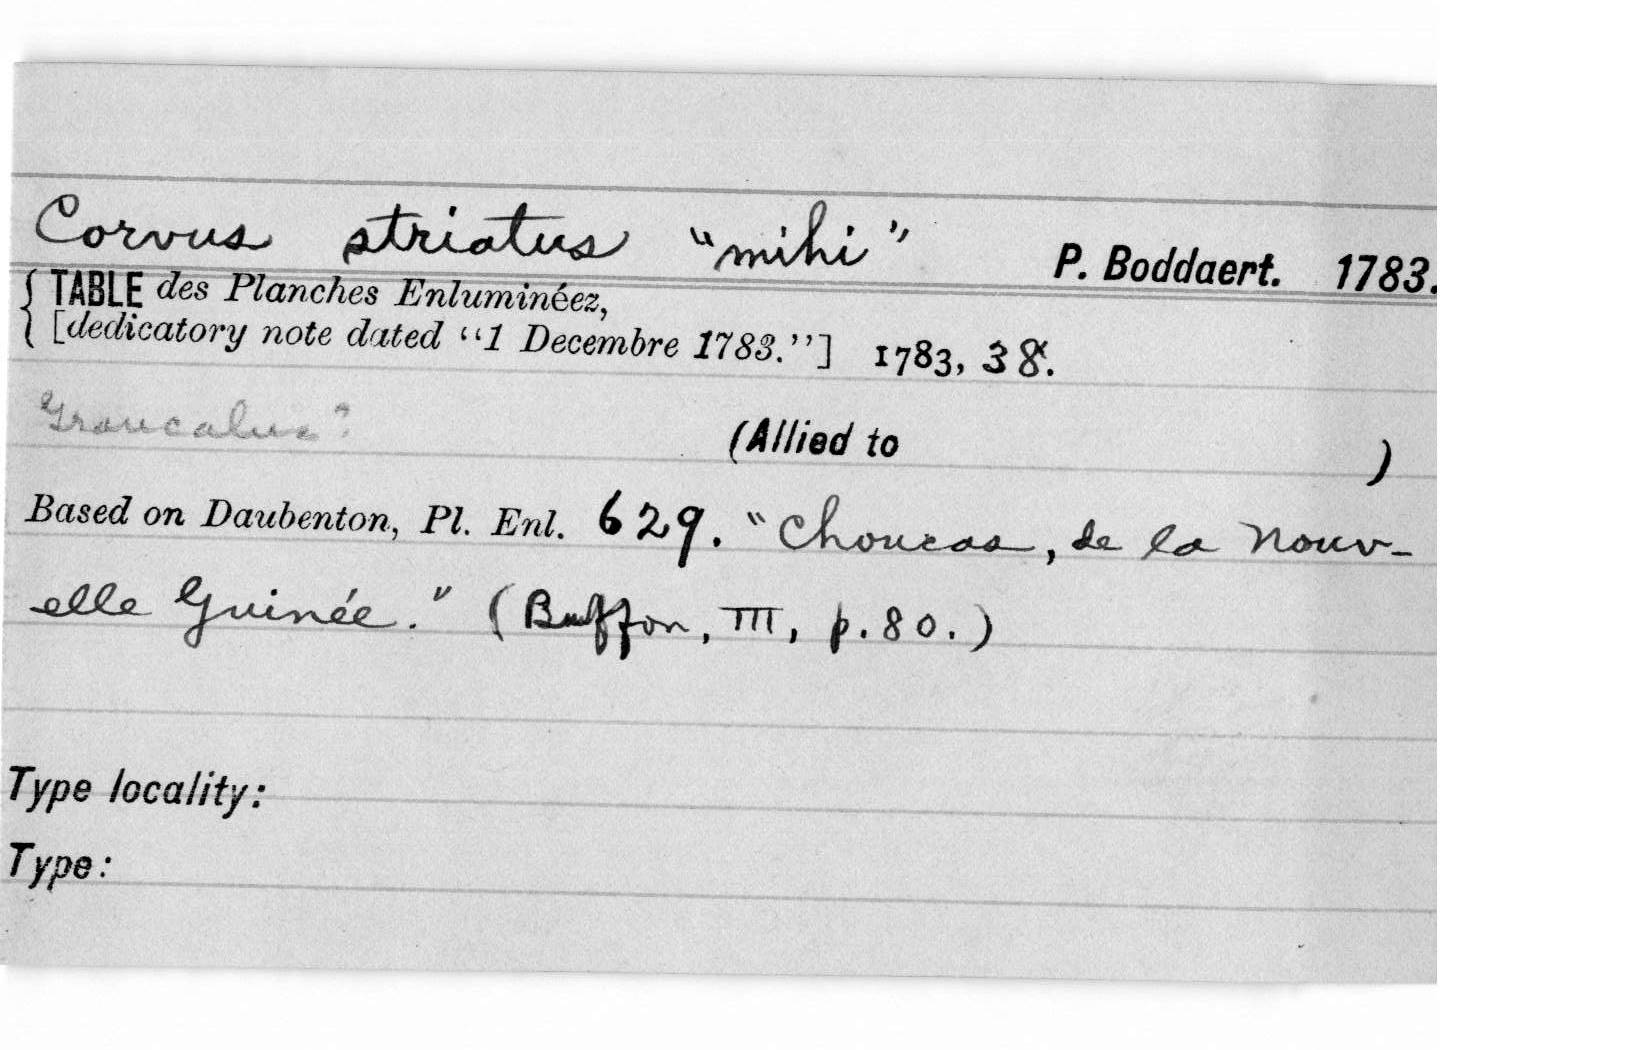 Corvus striatus "mihi" P. Boddaert. 1783.
TABLE des Planches Enluminéez,
[dedicatory note dated "1 Decembre 1783."] 1783, 38.
Graucalus? (Allied to )
Based on Daubenton, Pl. Enl. 629. "Choucas, de la Nouv-
elle Guinée." (Buffon, III, p. 80.)
Type locality:
Type: